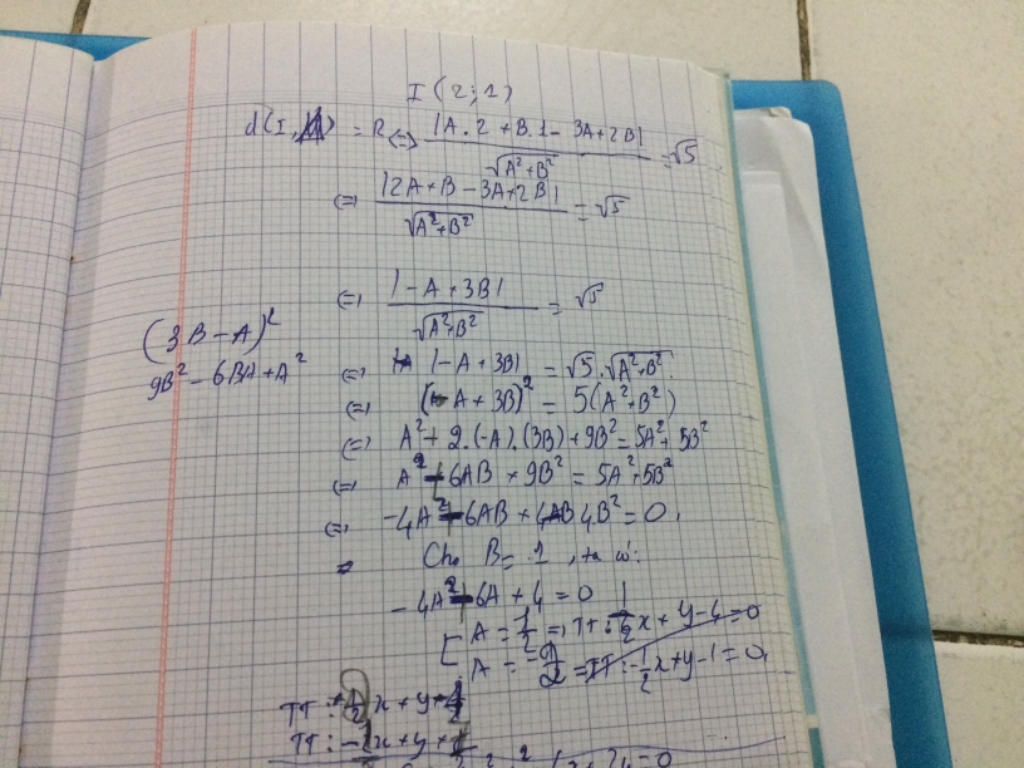 I (2; 1)
d(I, ) = R <=> |A.2 + B.1 - 3A + 2B| / √(A² + B²) = √5
<=> |2A + B - 3A + 2B| / √(A² + B²) = √5
<=> |-A + 3B| / √(A² + B²) = √5
(3B - A)²
9B² - 6BA + A²
<=> |-A + 3B| = √5 . √(A² + B²)
<=> (-A + 3B)² = 5(A² + B²)
<=> A² + 2.(-A).(3B) + 9B² = 5A² + 5B²
<=> A² - 6AB + 9B² = 5A² + 5B²
<=> -4A² - 6AB + 4B² = 0
Cho B = 1, ta có:
-4A² - 6A + 4 = 0
[ A = 1/2 => TT: 1/2x + y - 4 = 0
A = = TT: -1/2x + y - 1 = 0
TT: x + y
TT: - x + y